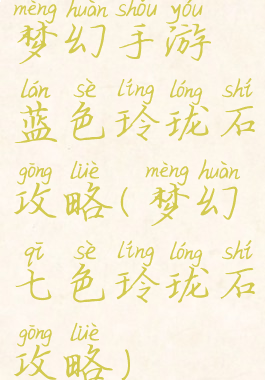 mèng huàn shǒu yóu
梦幻手游
lán sè líng lóng shí
蓝色玲珑石
gōng lüè mèng huàn
攻略(梦幻
qī sè líng lóng shí
七色玲珑石
gōng lüè
攻略)